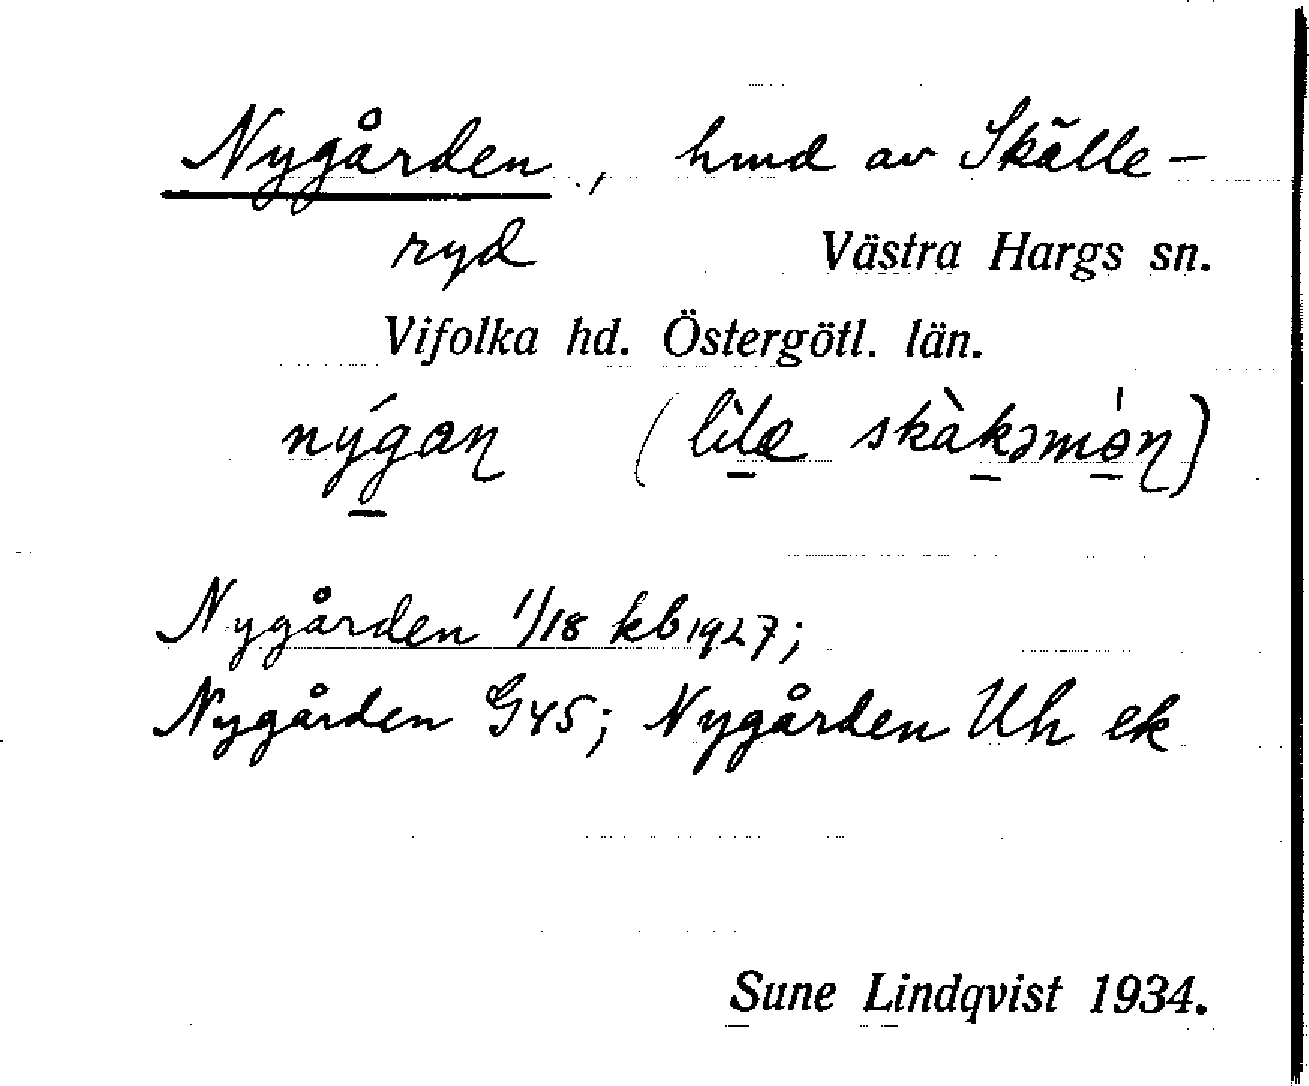 Nygården, hmd av Skälle-
ryd Västra Hargs sn.
Vifolka hd. Östergötl. län.
nýgaɳ (lìlæ skàkəmó̵ɳ)
Nygården 1/18 kb 1927;
Nygården G45; Nygården Uh ek
Sune Lindqvist 1934.